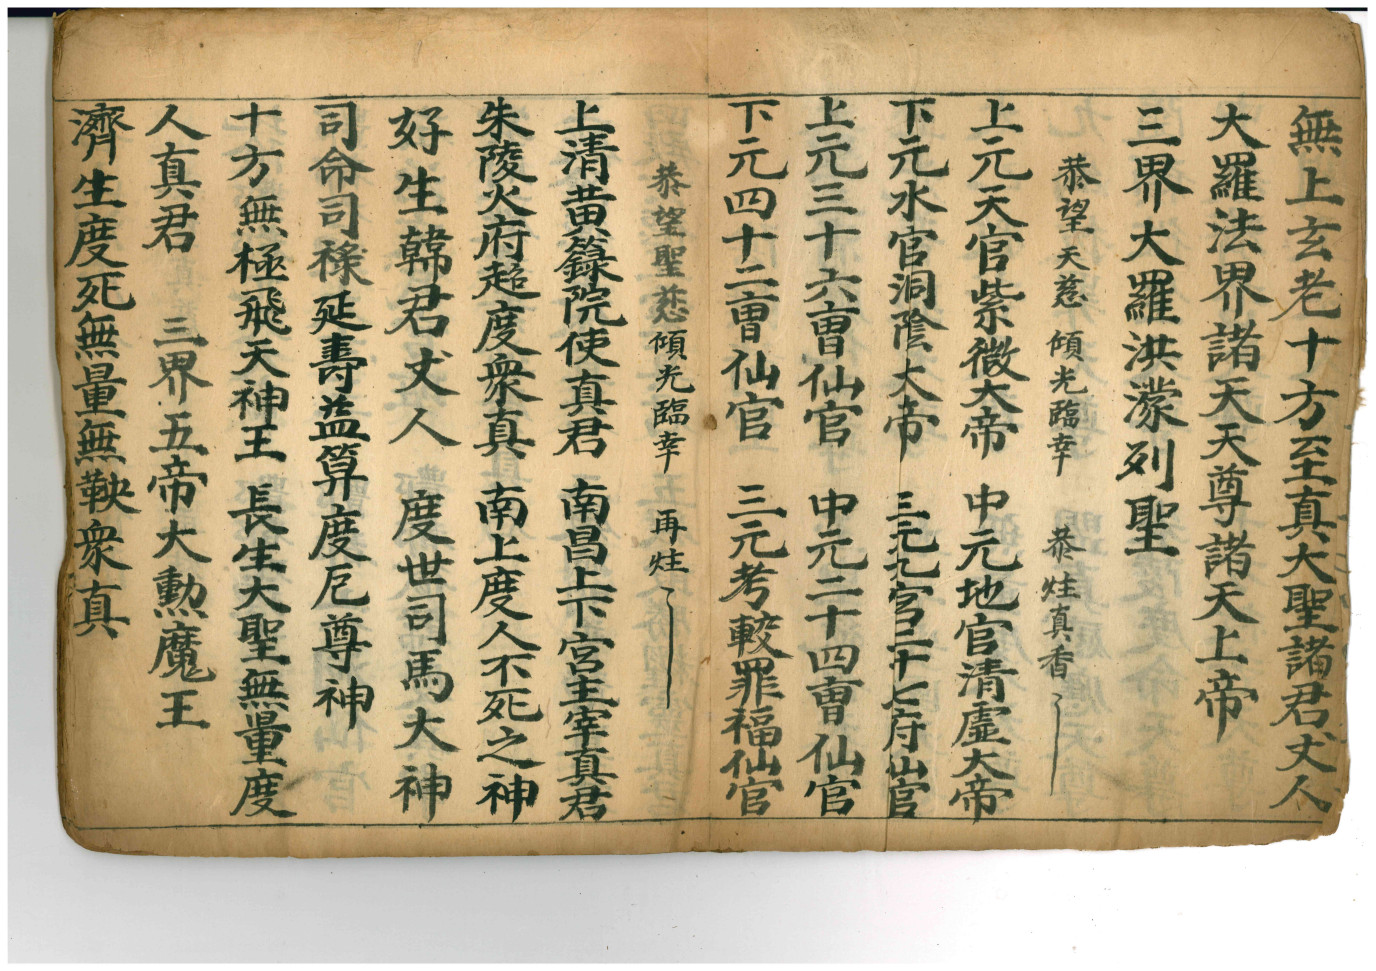 無上玄老十方至真大聖諸君丈人
大羅法界諸天天尊諸天上帝
三界大羅洪濛列聖
恭望天慈 傾光臨幸 恭炷真香
上元天官紫微大帝 中元地官清虛大帝
下元水官洞陰大帝 三元九宮二十七府仙官
上元三十六曹仙官 中元二十四曹仙官
下元四十二曹仙官 三元考較罪福仙官
恭望聖慈 傾光臨幸 再炷
上清黄籙院使真君 南昌上下宮主宰真君
朱陵火府超度衆真 南上度人不死之神
好生韓君丈人 度世司馬大神
司命司祿延壽益算度厄尊神
十方無極飛天神王 長生大聖無量度
人真君 三界五帝大勲魔王
濟生度死無量無鞅衆真